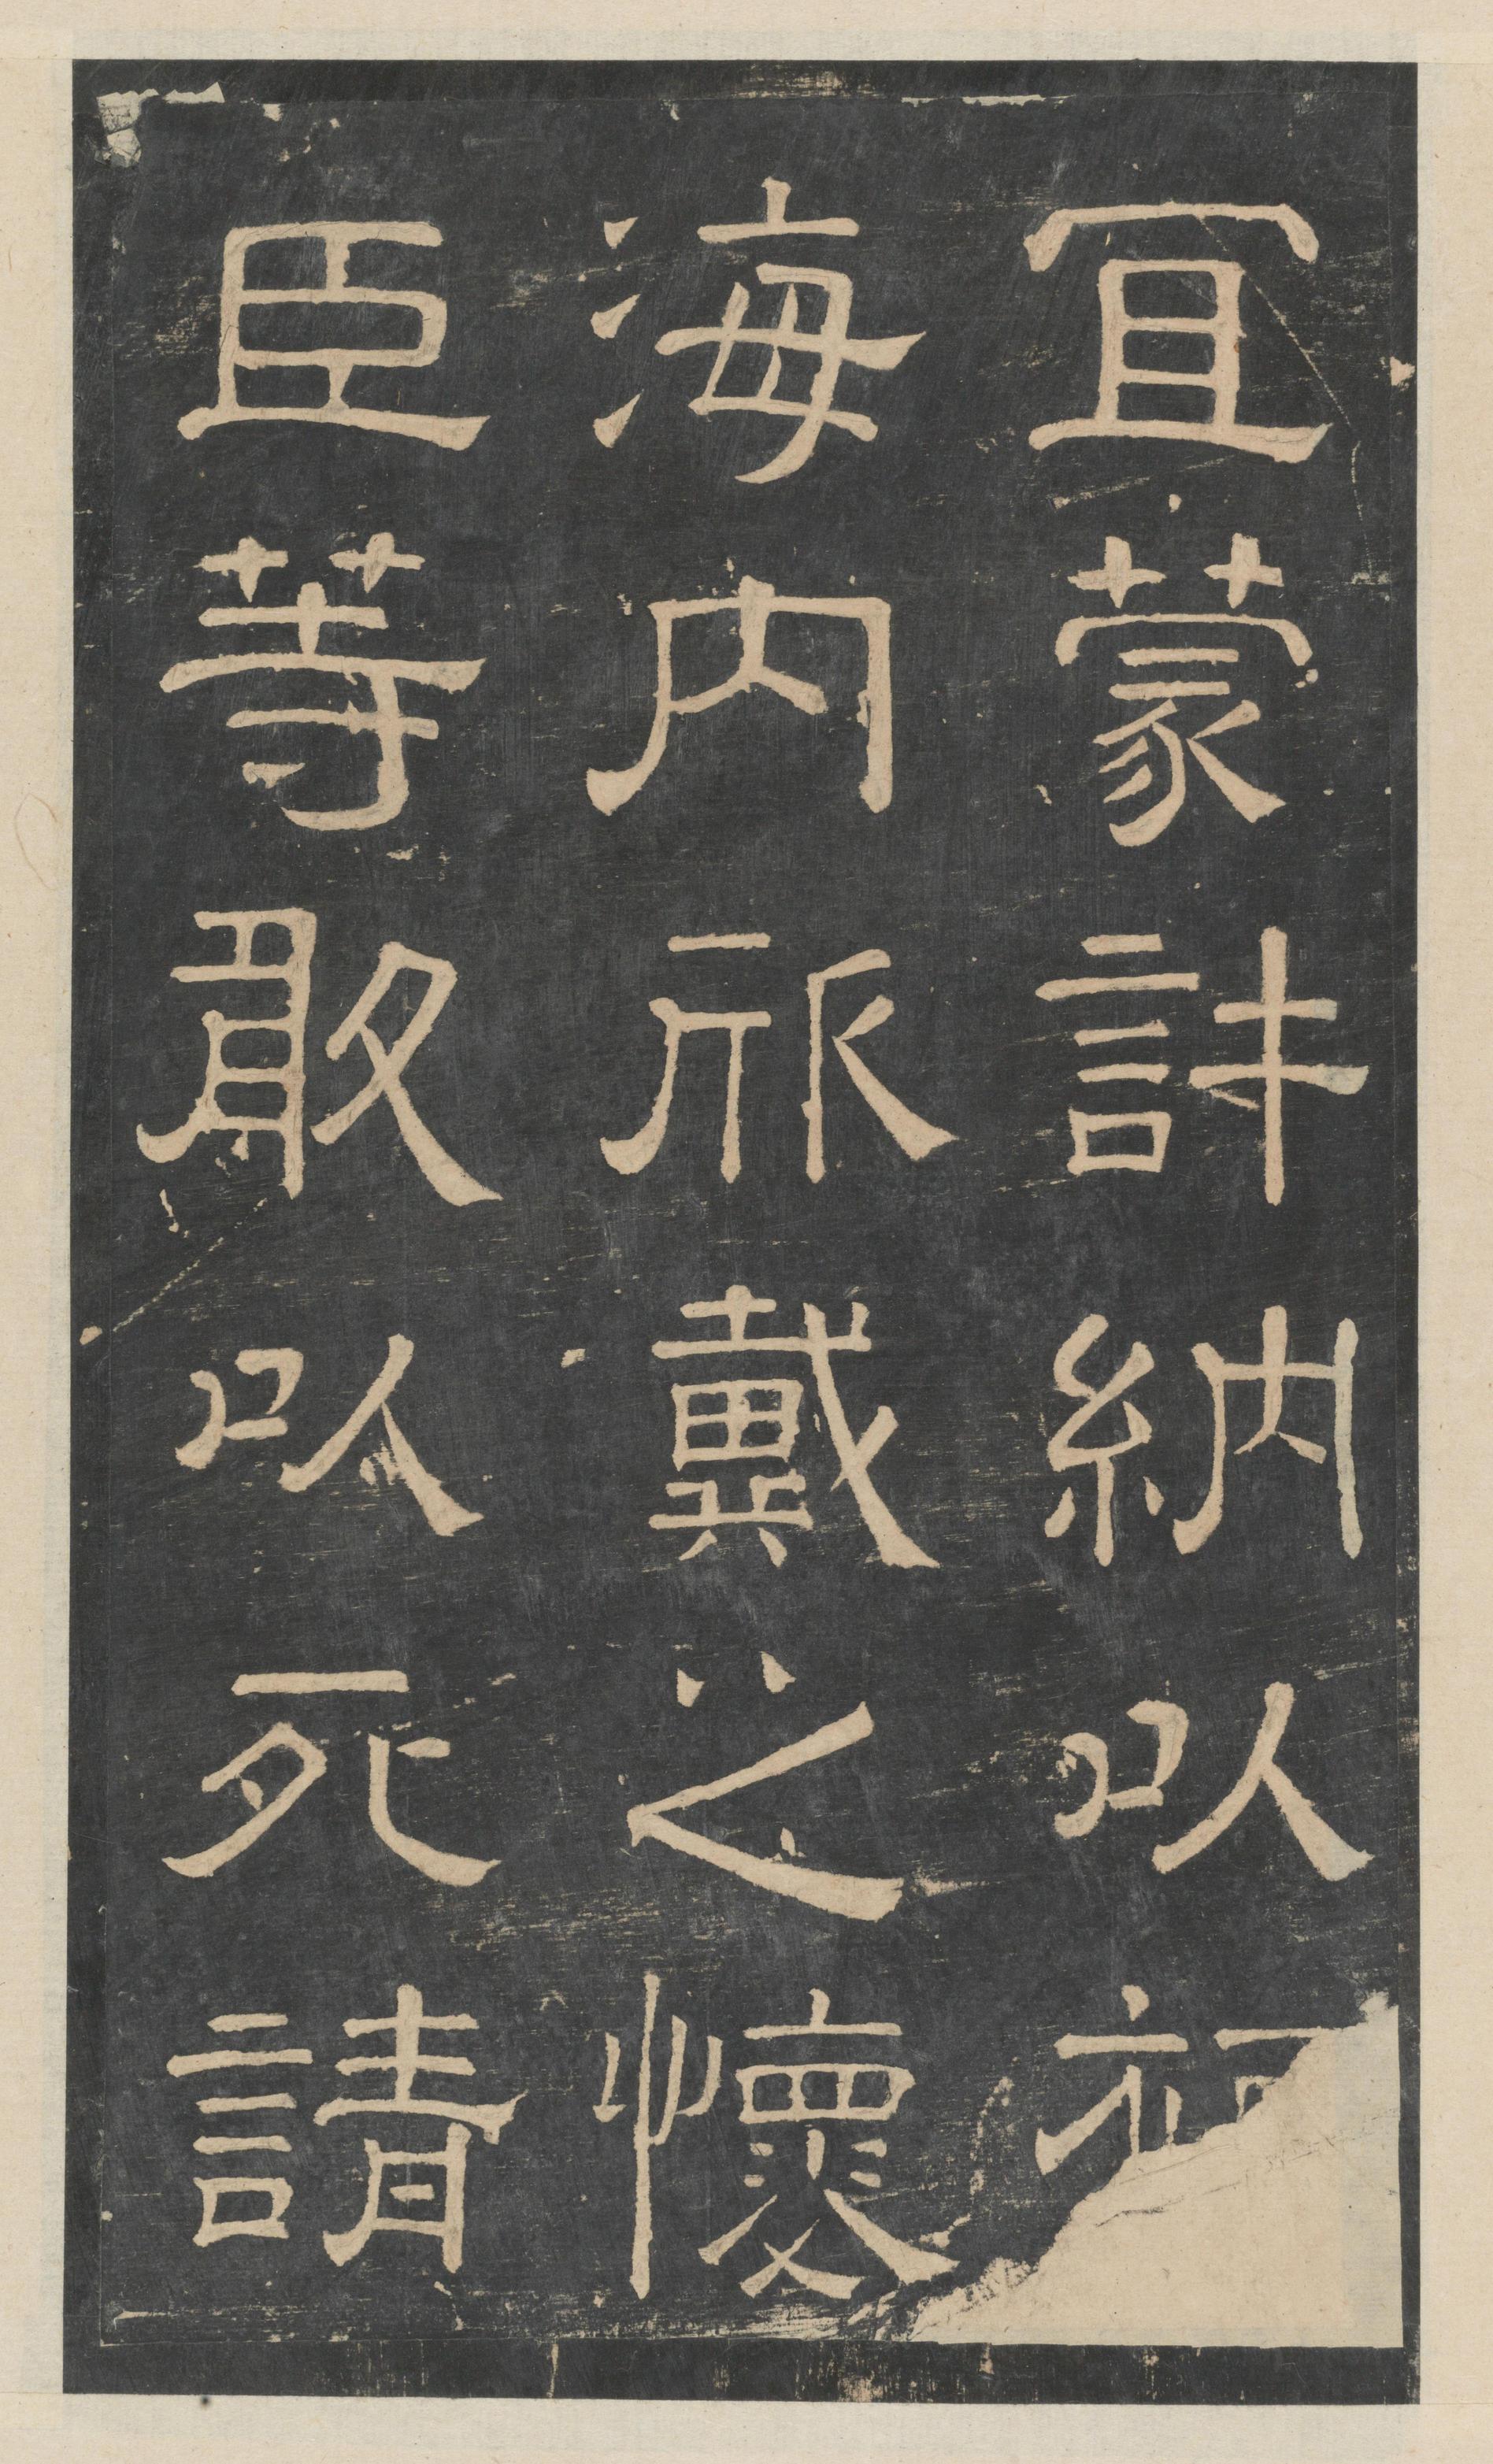 宜蒙許納以福
海内欣戴之懷
臣等敢以死請